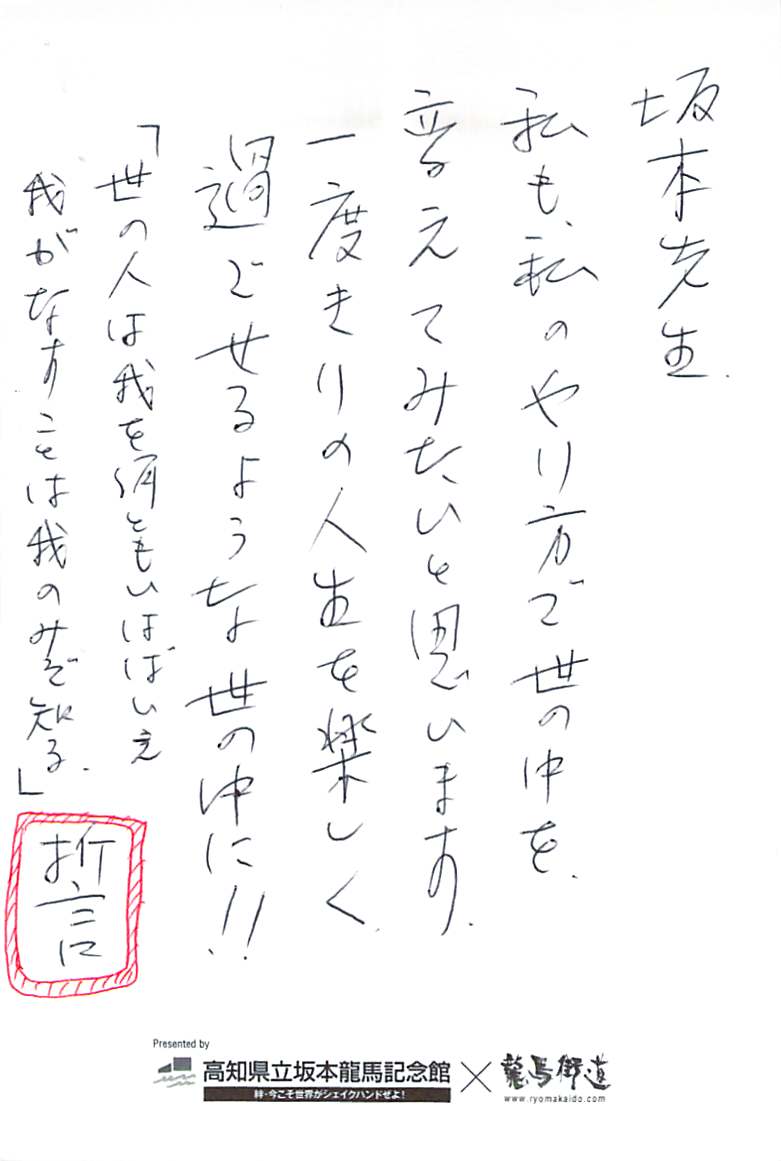 坂本先生.
私も、私のやり方で世の中を、
変えてみたいと思います。
一度きりの人生を楽しく、
過ごせるような世の中に!!
「世の人は我を何ともいはばいえ
我がなすことは我のみぞ知る.」
誓
Presented by
高知県立坂本龍馬記念館 × 龍馬街道
絆・今こそ世界がシェイクハンドせよ!
www.ryomakaido.com